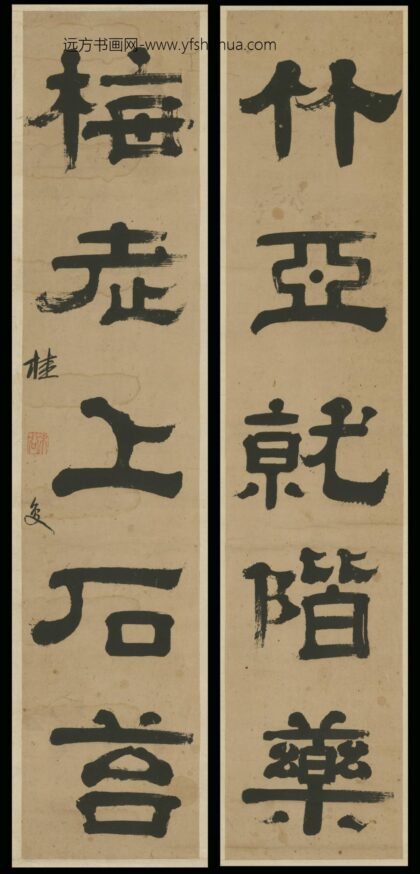 远方书画网-www.yfshuhua.com
竹亞就階藥
梅老上石苔
桂